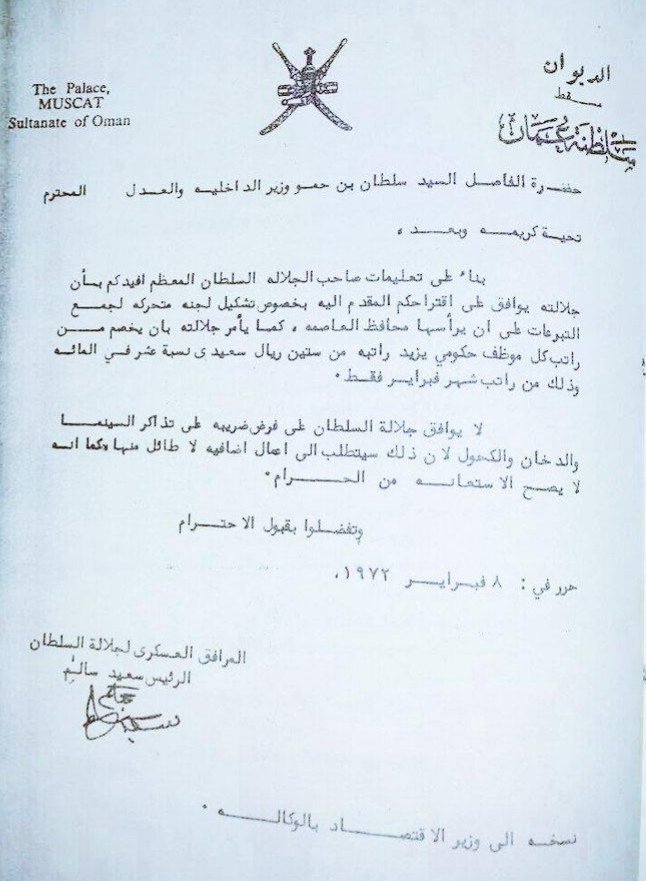 The Palace,
MUSCAT
Sultanate of Oman
الديوان
مسقط
سلطنة عمان
حضرة الفاضل السيد سلطان بن حمو وزير الداخليه والعدل المحترم
تحية كريمه وبعد ،
بناء على تعليمات صاحب الجلاله السلطان المعظم افيدكم بأن
جلالته يوافق على اقتراحكم المقدم اليه بخصوص تشكيل لجنه متحركه لجمع
التبرعات على ان يرأسها محافظ العاصمه ، كما يأمر جلالته بان يخصم من
راتب كل موظف حكومي يزيد راتبه من ستين ريال سعيدى نسبة عشر في المائه
وذلك من راتب شهر فبراير فقط .
لا يوافق جلالة السلطان على فرض ضريبه على تذاكر السينما
والدخان والكحول لان ذلك سيتطلب الى اعمال اضافيه لا طائل منها ، كما انه
لا يصح الاستعانه من الحرام .
وتفضلوا بقبول الاحترام
حرر في : ٨ فبراير ١٩٧٢.
المرافق العسكرى لجلالة السلطان
الرئيس سعيد سالم
نسخه الى وزير الاقتصاد بالوكاله .